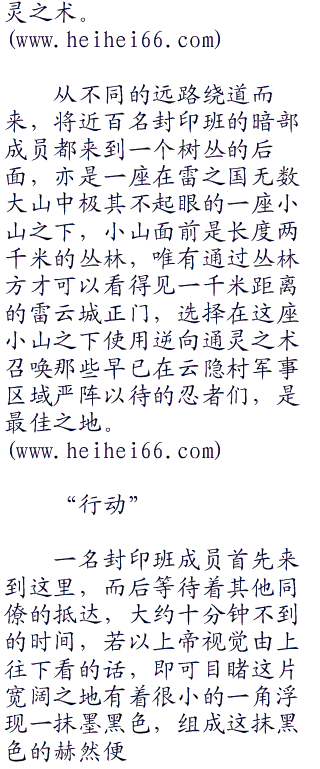 灵之术。
(www.heihei66.com)
从不同的远路绕道而
来，将近百名封印班的暗部
成员都来到一个树丛的后
面，亦是一座在雷之国无数
大山中极其不起眼的一座小
山之下，小山面前是长度两
千米的丛林，唯有通过丛林
方才可以看得见一千米距离
的雷云城正门，选择在这座
小山之下使用逆向通灵之术
召唤那些早已在云隐村军事
区域严阵以待的忍者们，是
最佳之地。
(www.heihei66.com)
“行动”
一名封印班成员首先来
到这里，而后等待着其他同
僚的抵达，大约十分钟不到
的时间，若以上帝视觉由上
往下看的话，即可目睹这片
宽阔之地有着很小的一角浮
现一抹墨黑色，组成这抹黑
色的赫然便